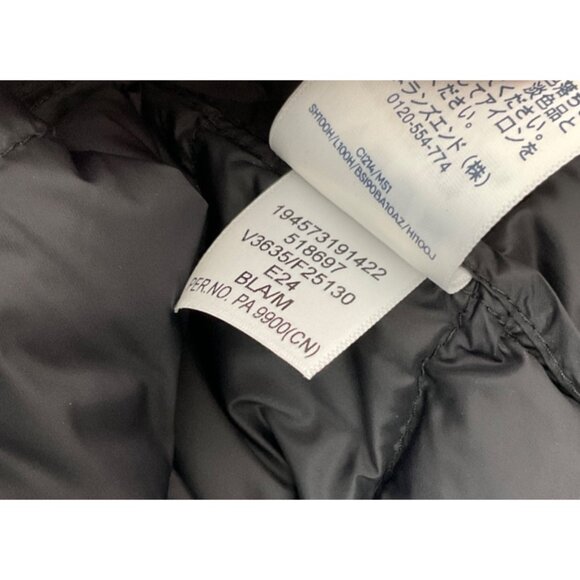 淡色品と
ください。
してアイロンを
ください。
ランズエンド（株）
0120-554-774
CI214/M51
SH100H/L100H/BS190BA10AZ/H1100J
194573191422
518697
V3635/F25130
E24
BLA/M
PER.NO. PA 9900(CN)